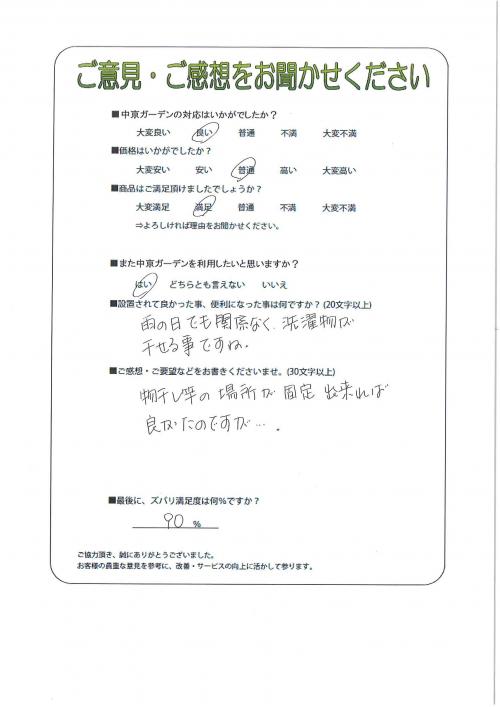 ご意見・ご感想をお聞かせください
■中京ガーデンの対応はいかがでしたか？
大変良い 良い 普通 不満 大変不満
■価格はいかがでしたか？
大変安い 安い 普通 高い 大変高い
■商品はご満足頂けましたでしょうか？
大変満足 満足 普通 不満 大変不満
⇒よろしければ理由をお聞かせください。
■また中京ガーデンを利用したいと思いますか？
はい どちらとも言えない いいえ
■設置されて良かった事、便利になった事は何ですか？(20文字以上)
雨の日でも関係なく、洗濯物が
干せる事ですね。
■ご感想・ご要望などをお書きくださいませ。(30文字以上)
物干し竿の場所が固定出来れば
良かったのですが…。
■最後に、ズバリ満足度は何%ですか？
90 %
ご協力頂き、誠にありがとうございました。
お客様の貴重な意見を参考に、改善・サービスの向上に活かして参ります。